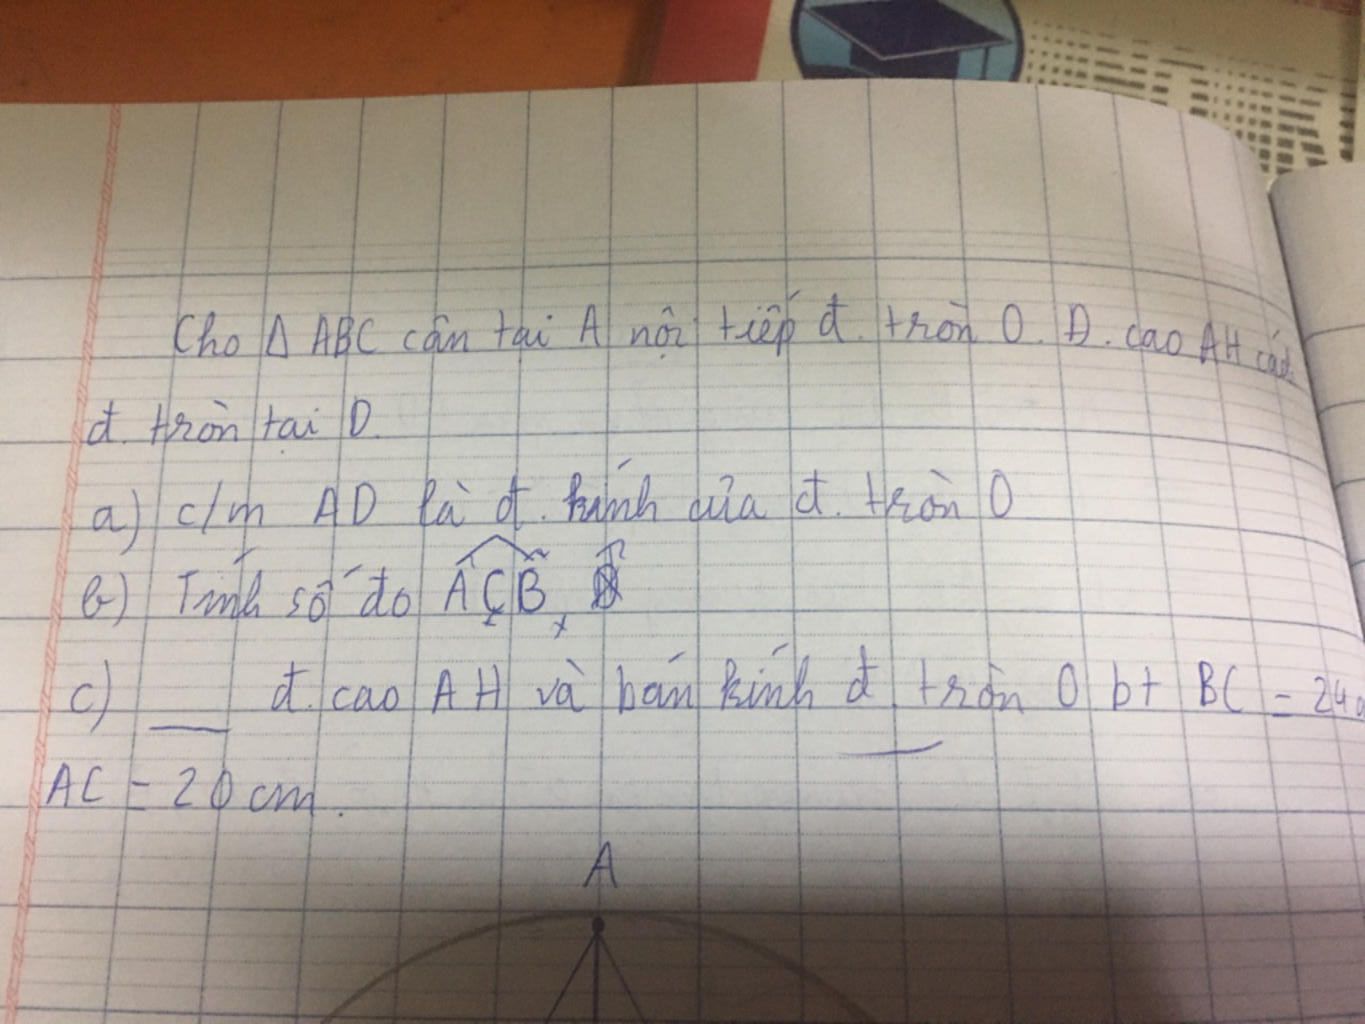 Cho Δ ABC cân tại A nội tiếp đ. tròn O. Đ. cao AH cắt
đ. tròn tại D.
a) c/m AD là đ. kính của đ. tròn O
b) Tính số đo ACB
c) ___ đ. cao AH và bán kính đ. tròn O bt BC = 24
AC = 20 cm.
A